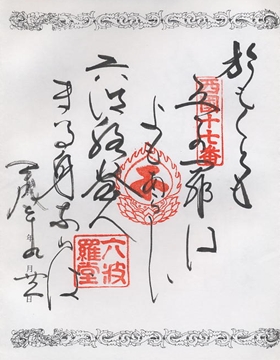 於もくとも
西国十七番
五つの罪は
よもあらじ
六波羅堂へ
まゐる身なれば
六波
羅堂